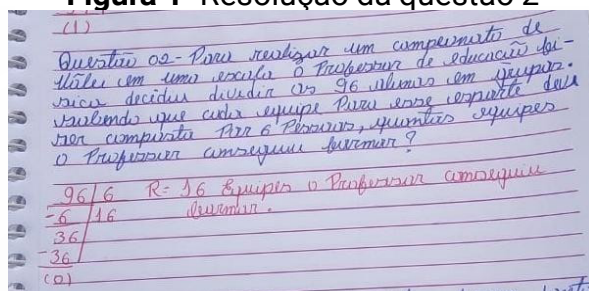 Figura 4 Resolução da questão 2
(1)
Questão 02 - Para realizar um campeonato de
vôlei em uma escola o Professor de educação fí-
sica decidiu dividir os 96 alunos em grupos.
sabendo que cada equipe Para esse esporte deve
ser composta Por 6 Pessoas, quantas equipes
o Professor conseguiu formar?
96 | 6 R= 16 Equipes o Professor conseguiu
-6 | 16 formar.
36
-36
(0)